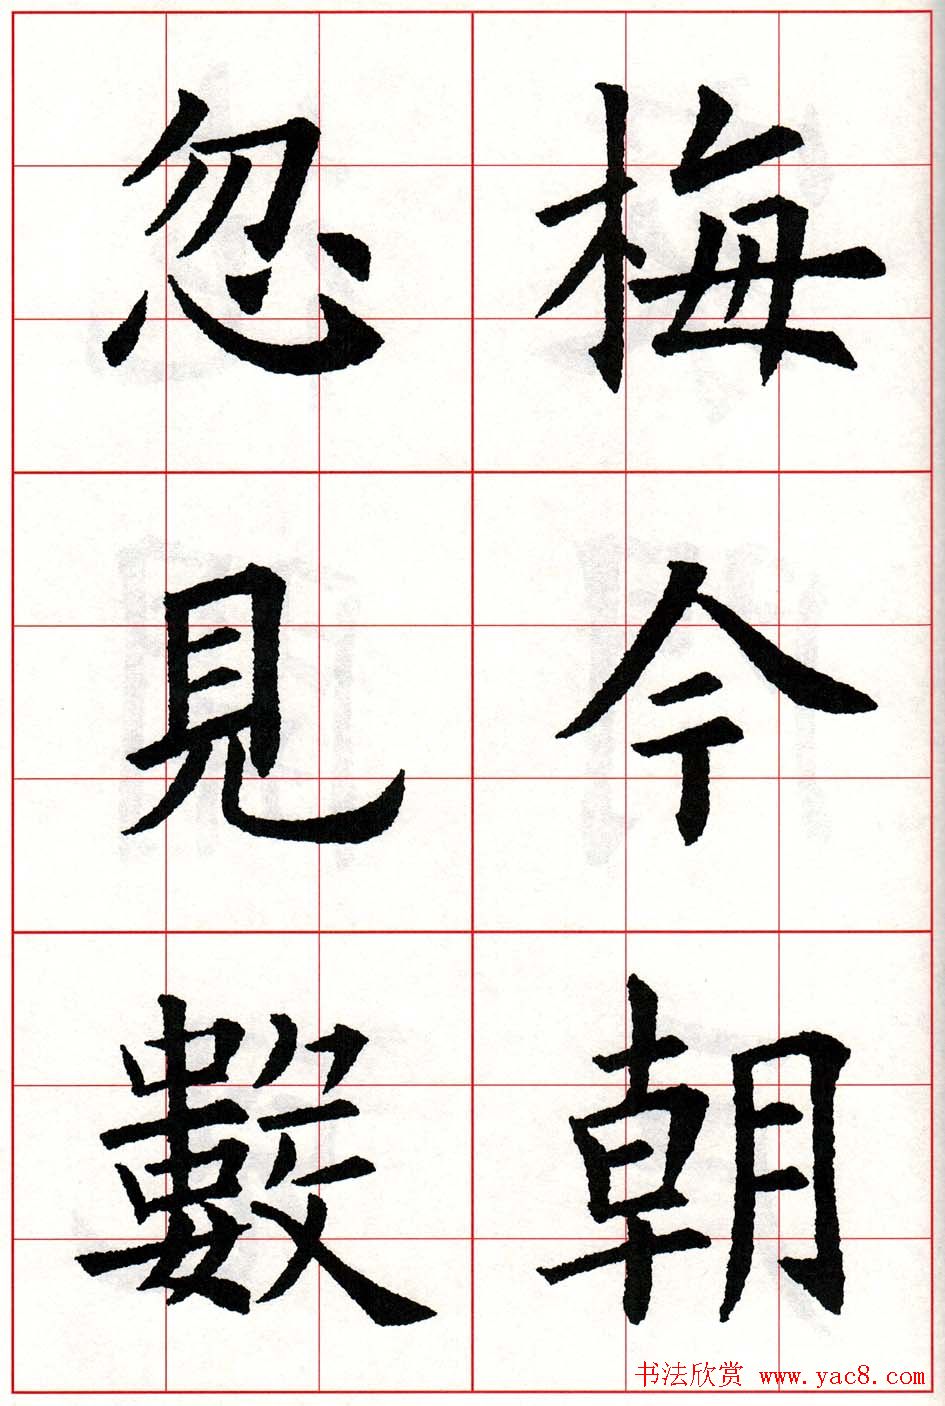 梅今朝
忽見數
书法欣赏 www.yac8.com